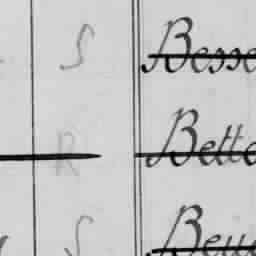 S Besse
R Bette
S Beu